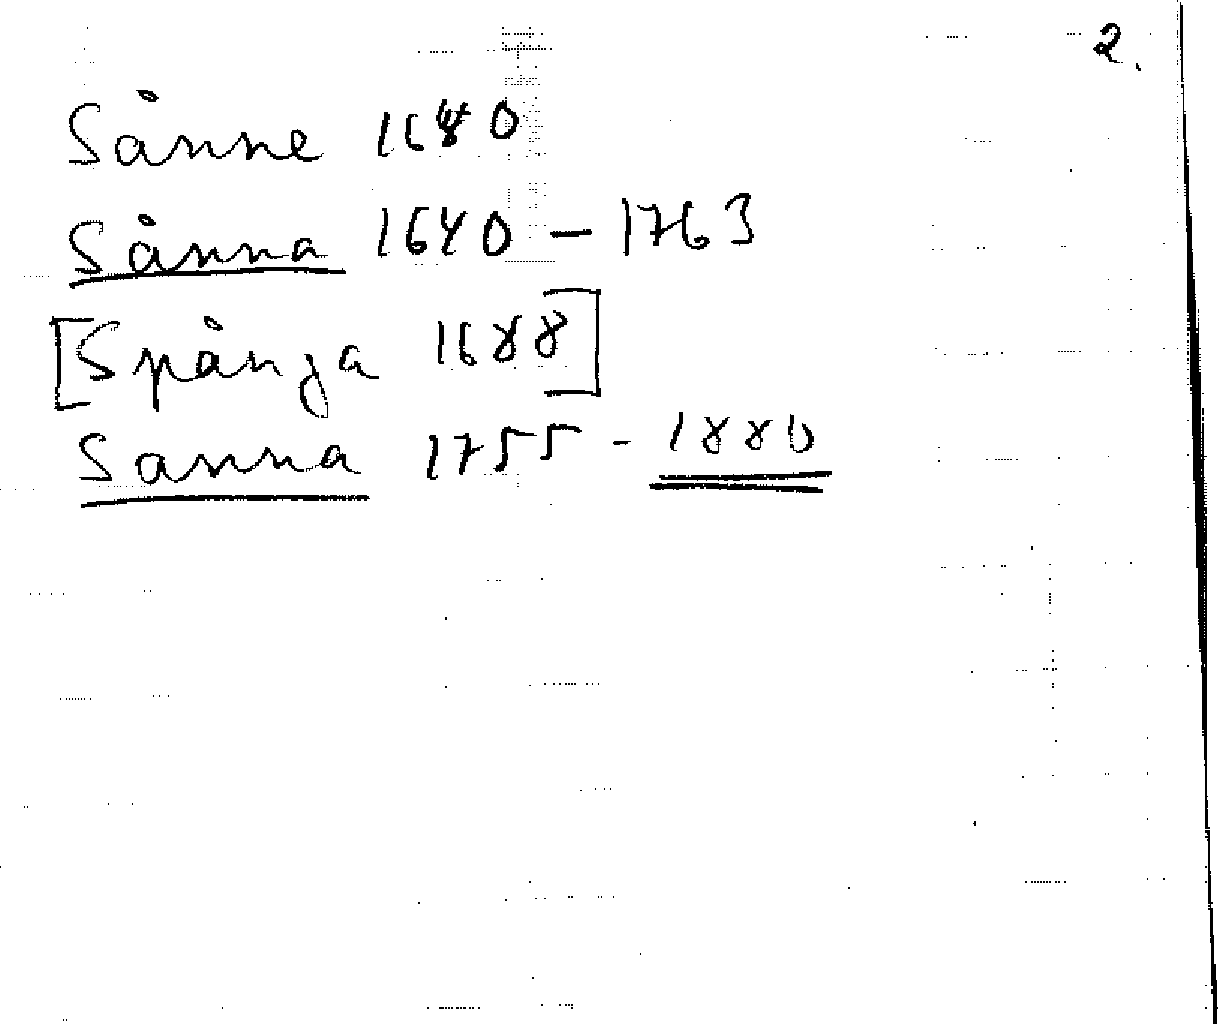 2.
Sånne 1640
Sånna 1640 – 1763
[Spånga 1688]
Sanna 1755 - 1880